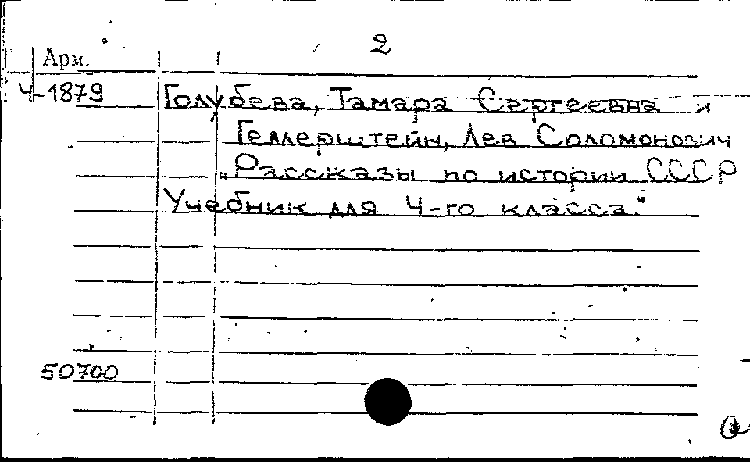 2
Арм.
Ч-1879
Голубева, Тамара Сергеевна и
Геллерштейн, Лев Соломонович
„Рассказы по истории СССР
Учебник для 4-го класса."
50700